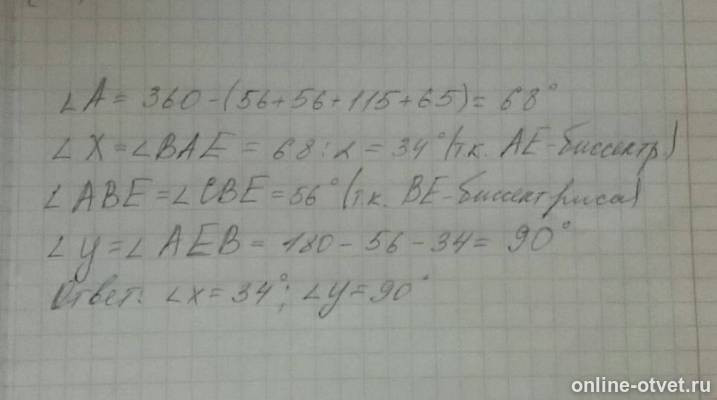 ∠A = 360 - (56 + 56 + 115 + 65) = 68°
∠X = ∠BAE = 68 : 2 = 34° (т.к. AE - биссектр)
∠ABE = ∠CBE = 56° (т.к. BE - биссектриса)
∠y = ∠AEB = 180 - 56 - 34 = 90°
Ответ: ∠x = 34°; ∠y = 90°
online-otvet.ru